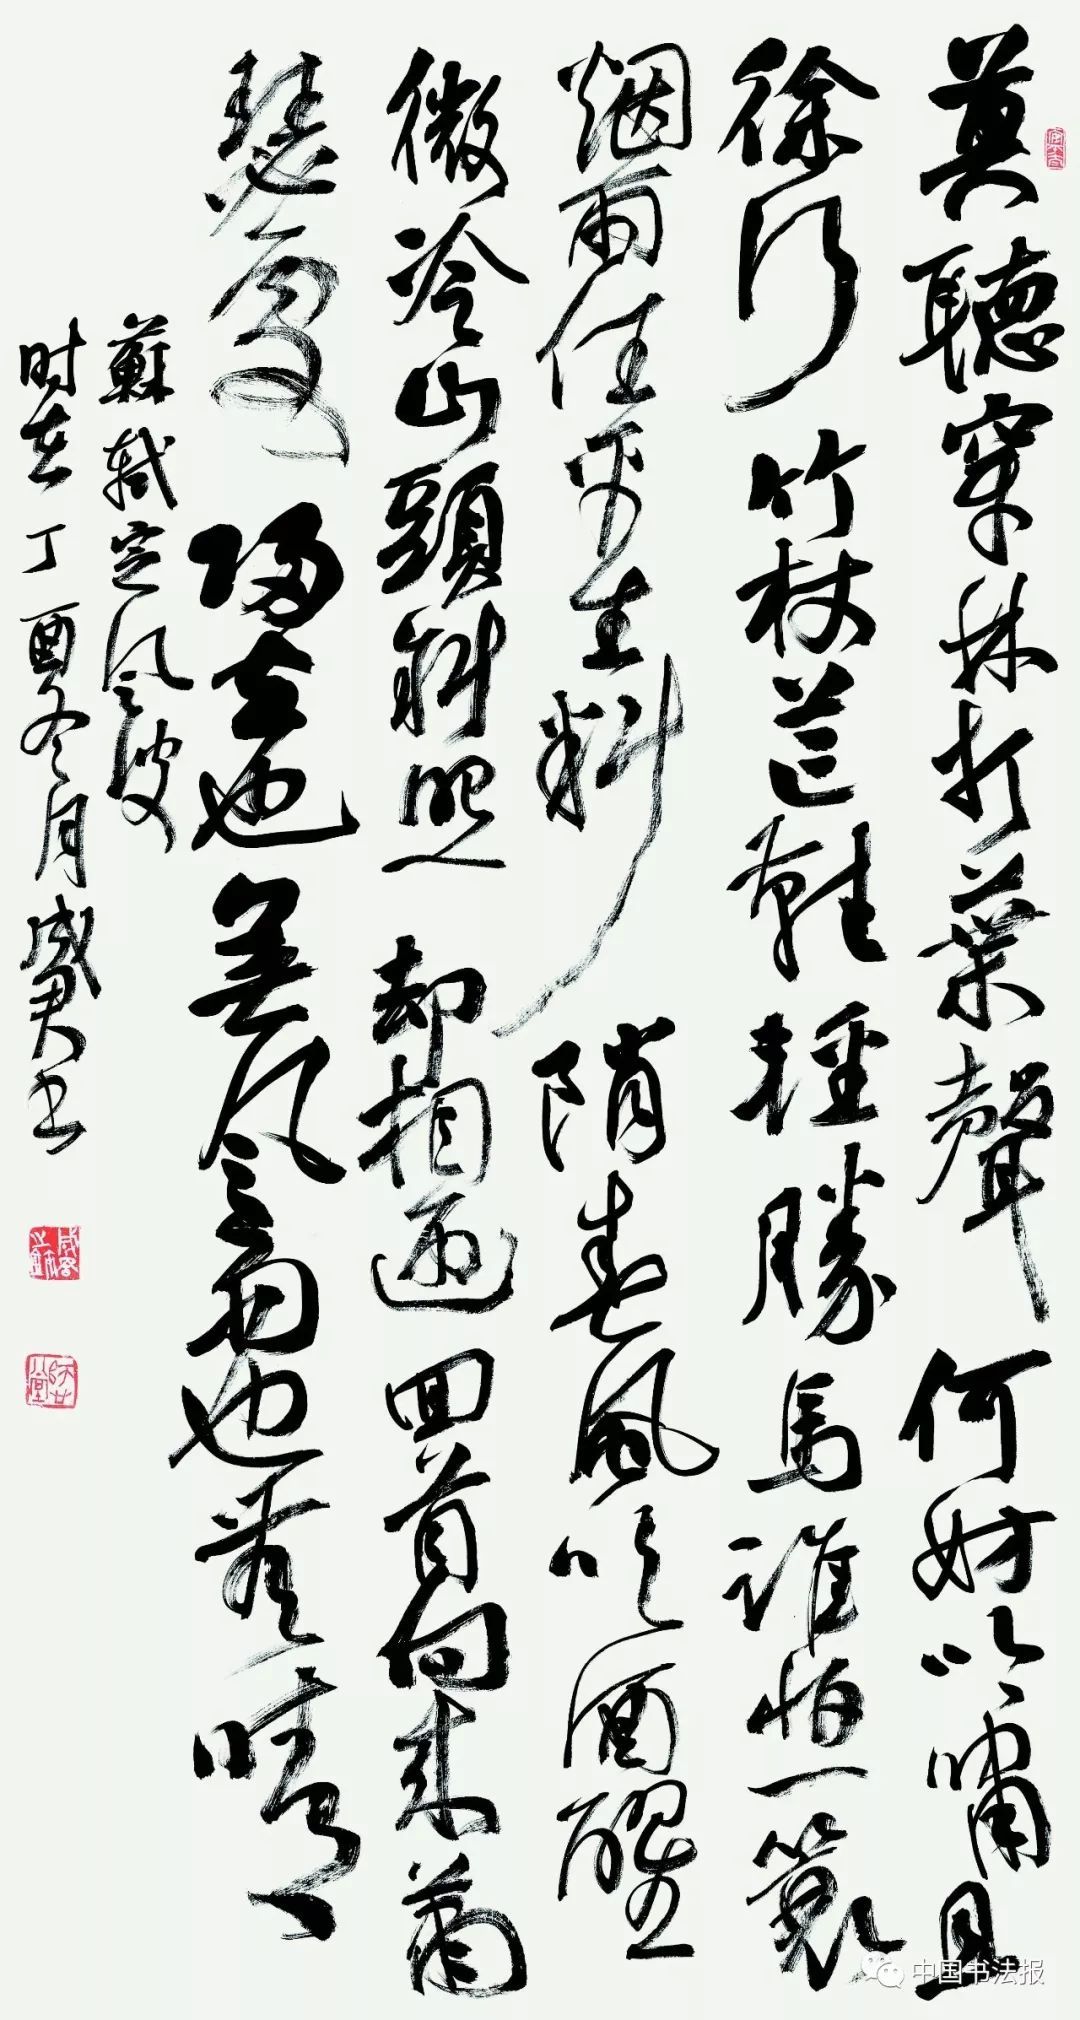 莫聽穿林打葉聲何妨吟嘯且
徐行竹杖芒鞋輕勝馬誰怕一蓑
烟雨任平生料陗春風吹酒醒
微冷山頭斜照却相迎回首向来蕭
瑟處歸去也無風雨也無晴
蘇軾定風波
时在丁酉冬月书
中国书法报